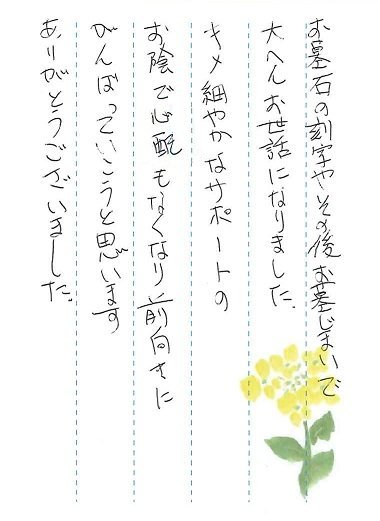 お墓石の刻字やその後お墓じまいで
大へんお世話になりました.
キメ細やかなサポートの
お陰で心配もなくなり前向きに
がんばっていこうと思います
ありがとうございました.